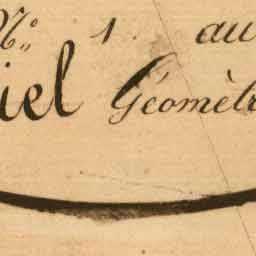 N.° 1. au
iel Géomèt